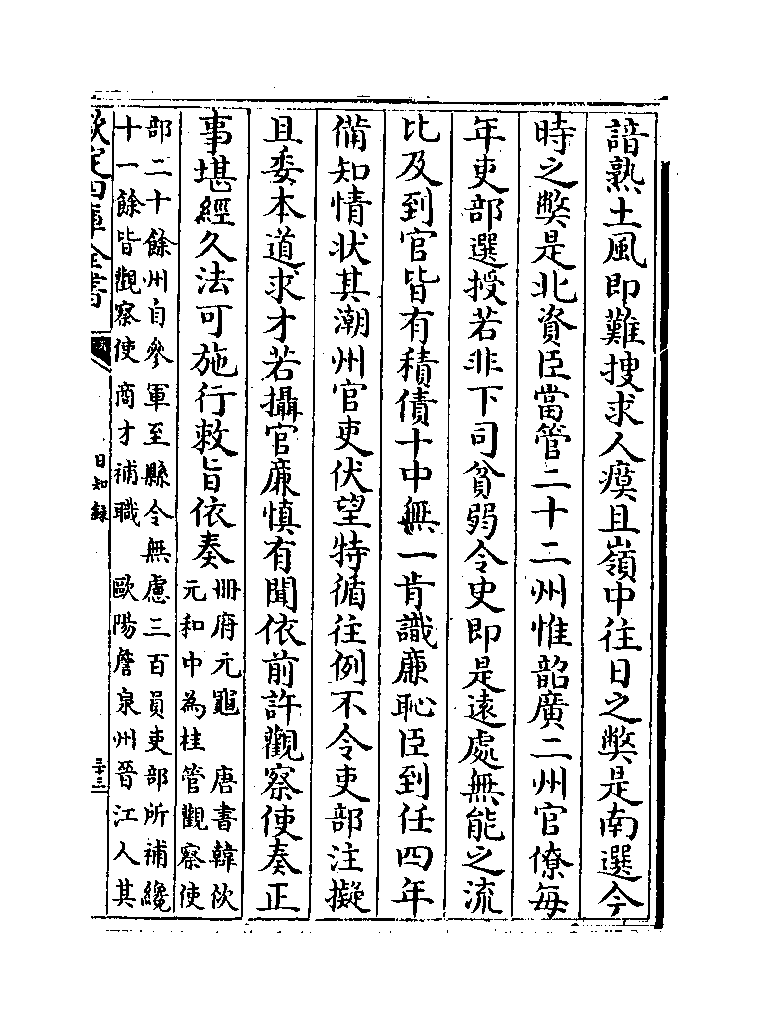 諳熟土風即難搜求人瘼且嶺中往日之獘是南選今
時之獘是北資臣當管二十二州惟韶廣二州官僚毎
年吏部選授若非下司貧弱令史即是遠處無能之流
比及到官皆有積債十中無一肯識亷恥臣到任四年
備知情状其潮州官吏伏望特循往例不令吏部注擬
且委本道求才若攝官亷慎有聞依前許觀察使奏正
事堪經久法可施行敕旨依奏
冊府元龜　唐書韓佽
元和中為桂管觀察使
部二十餘州自參軍至縣令無慮三百員吏部所補纔
十一餘皆觀察使商才補職　歐陽詹泉州晉江人其
欽定四庫全書
日知錄
三十三